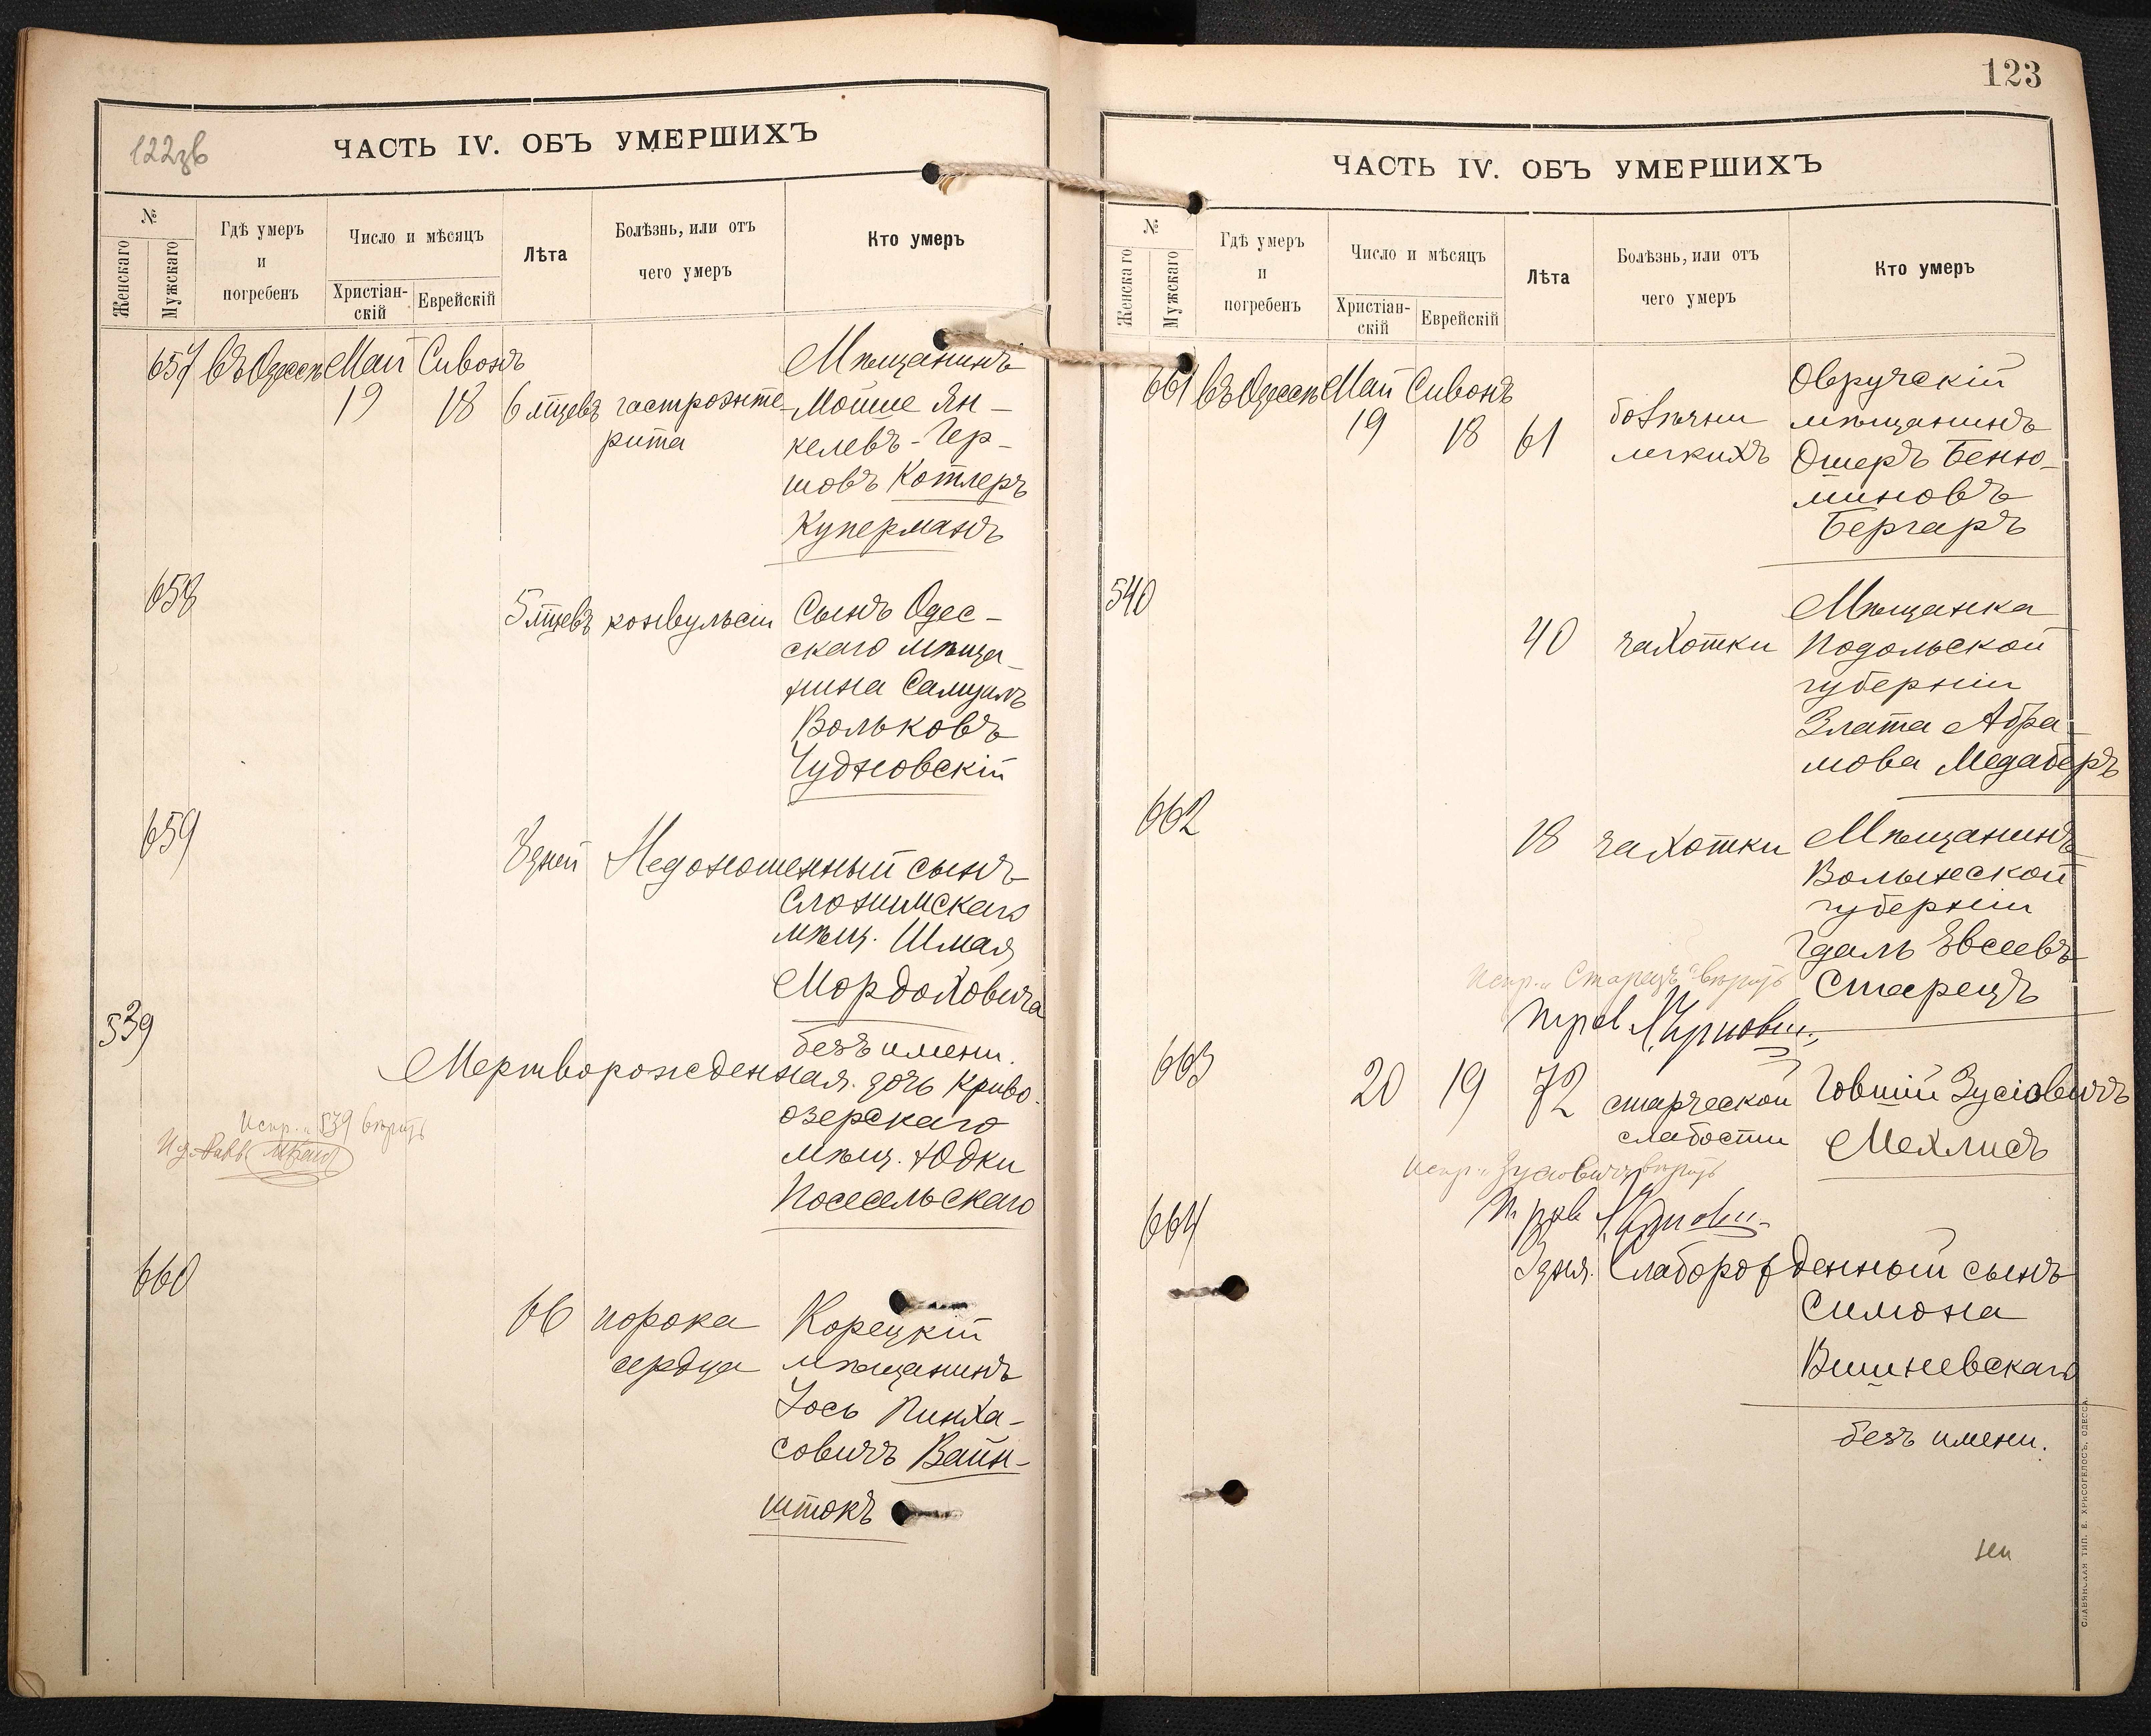 122зв
ЧАСТЬ IV. ОБЪ УМЕРШИХЪ
№
Женскаго
Мужскаго
Гдѣ умеръ
и
погребенъ
Число и мѣсяцъ
Христіан-
скій
Еврейскій
Лѣта
Болѣзнь, или отъ
чего умеръ
Кто умеръ
657 Въ Одессѣ Май Сивонъ
19 18 6 мцевъ гастроэнте-
рита
Мѣщанинъ
Мойше Ян-
келевъ-Гер-
шовъ Котлеръ
Куперманъ
658
5 мцевъ конвульсіи
Сынъ Одес-
скаго мѣща-
нина Самуилъ
Вольковъ
Чудновскій
659
8 дней Недоношенный сынъ
Слонимскаго
мѣщ. Шмая
Мордоховича
безъ имени.
539
Мертворожденная дочь Криво-
озерскаго
мѣщ. Юдки
Посесельскаго
Испр. „539 вѣрить
660
66 порока
сердца
Корецкій
мѣщанинъ
Іось Пинха-
совичъ Вайн-
штокъ
123
ЧАСТЬ IV. ОБЪ УМЕРШИХЪ
№
Женскаго
Мужскаго
Гдѣ умеръ
и
погребенъ
Число и мѣсяцъ
Христіан-
скій
Еврейскій
Лѣта
Болѣзнь, или отъ
чего умеръ
Кто умеръ
661 Въ Одессѣ Май Сивонъ
19 18 61
болѣзни
легкихъ
Овручскій
мѣщанинъ
Ошеръ Беню-
миновъ
Бергаръ
540
40 чахотки
Мѣщанка
Подольской
губерніи
Злата Абра-
мова Медаберъ
662
18 чахотки
Мѣщанинъ
Волынской
губерніи
Гдаль Евсеевъ
Старецъ
Испр. „Старецъ" вѣрить
663
20 19 72 старческой
слабости
Говшій Зусіовичъ
Мехлисъ
Испр. „Зусіовичъ" вѣрить
664
3 дня. Слаборожденный сынъ
Симона
Вишневскаго
безъ имени.
СЛАВЯНСКАЯ ТИП. Е. ХРИСОГЕЛОСЪ, ОДЕССА